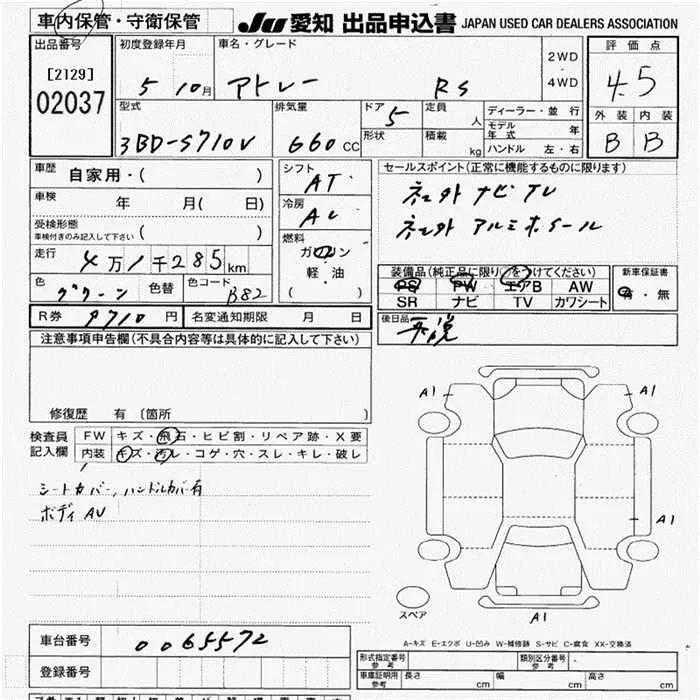 車内保管・守衛保管
JU 愛知 出品申込書 JAPAN USED CAR DEALERS ASSOCIATION
出品番号 初度登録年月 車名・グレード 2WD ・ 4WD 評価点
[2129] 5 10月 アトレー RS 4.5
02037
型式 排気量 ドア 定員 ディーラー・並行 外装 内装
3BD-S710V 660 CC 5 人 モデル年式 年 B B
形状 積載 kg ハンドル 左・右
車歴 自家用・( ) シフト AT セールスポイント(正常に機能するものに限ります)
車検 年 月( 日) 冷房 ネェ外 ナビ・TV
受検形態 車検付きのみ記入して下さい ( ) 燃料 ネェ外 アルミホイール
走行 4万1千285km ガソリン
軽・油
( )
色 グリーン 色替 色コード B82
装備品(純正品に限り○をつけてください) 新車保証書
PS PW エアB AW 有・無
SR ナビ TV カワシート
R券 9710円 名変通知期限 月 日 後日品
注意事項申告欄(不具合内容等は具体的に記入して下さい)
修復歴 有 〔箇所 〕
検査員記入欄 FW キズ・飛石・ヒビ割・リペア跡・X要
内装 キズ・汚レ・コゲ・穴・スレ・キレ・破レ
シートカバー、ハンドルカバー有
ボディ AU
A1 A1
A1
スペア A1
A-キズ E-エクボ U-凹み W-補修跡 S-サビ C-腐食 XX-交換済
車台番号 0065572
登録番号
形式指定番号 参考 類別区分番号 参考
車庫証明用 参考 長さ cm 幅 cm 高さ cm